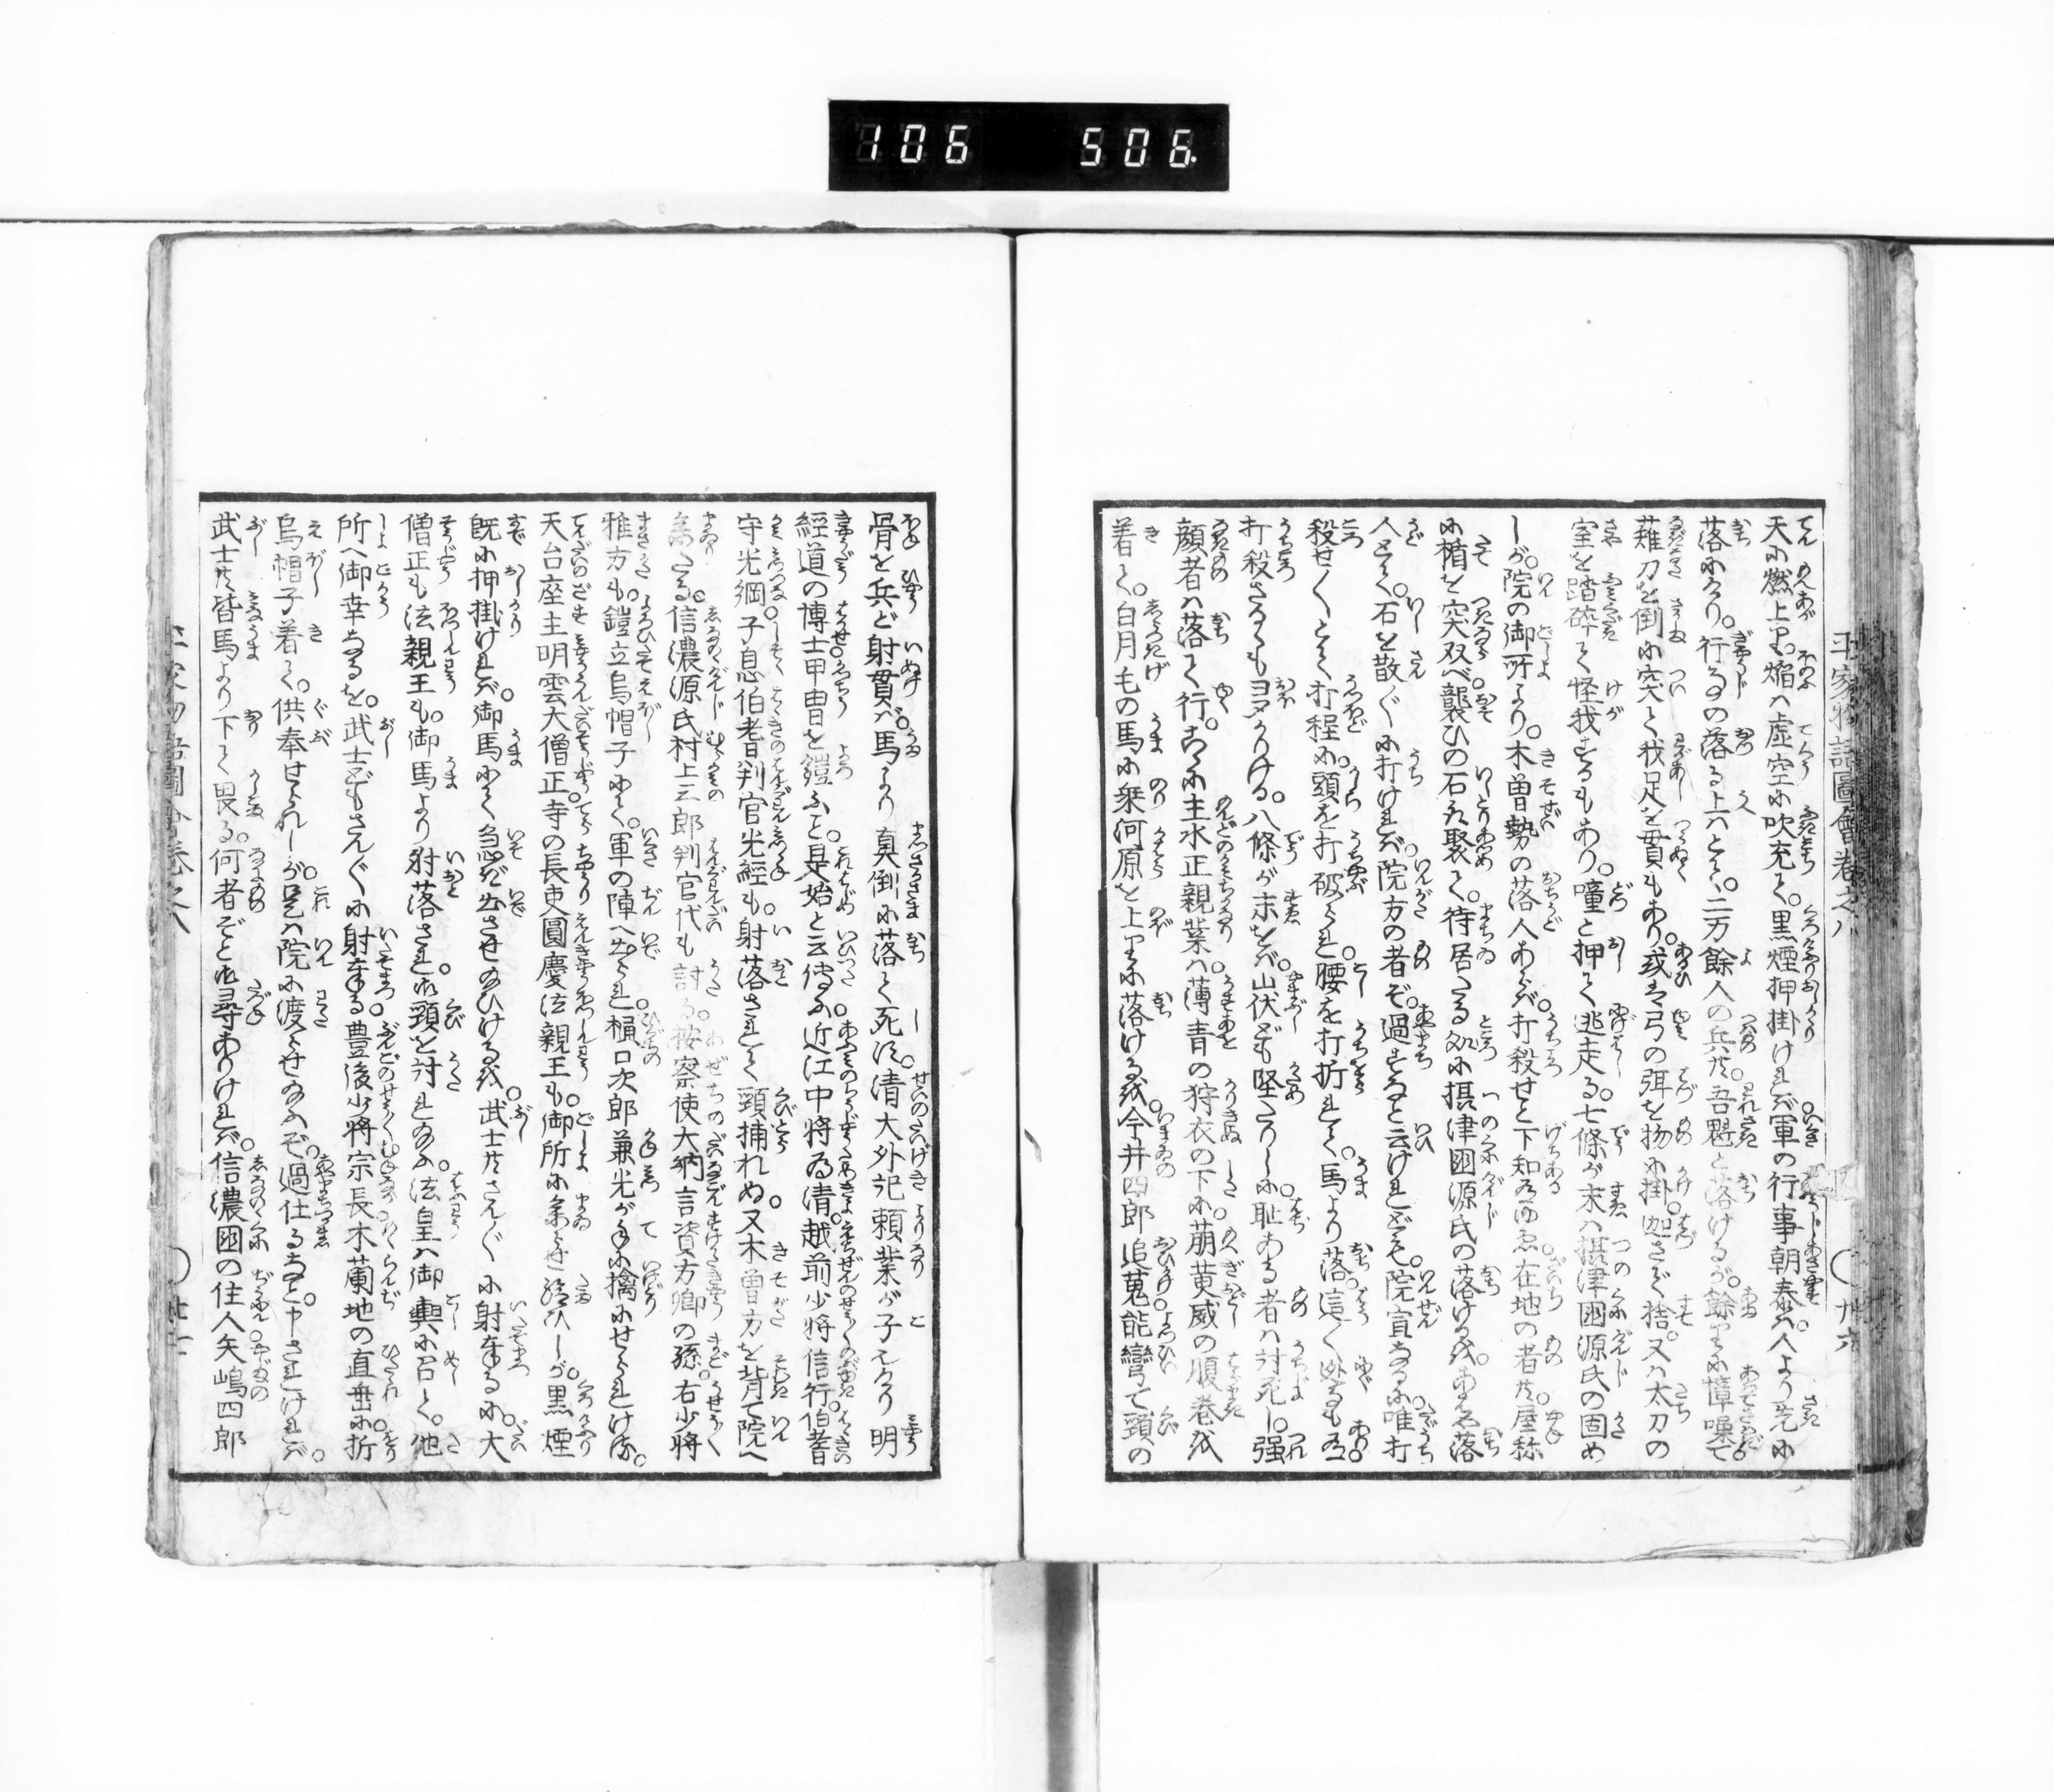 106 506.
平家物語圖會卷之八
天に燃上り。焔は虚空に吹充て。黒煙押掛ければ軍の行事朝泰は。人より先に
落にけり。行事の落る上はとて。二万餘人の兵共。吾魁と落けるが。餘りに憧噪で
薙刀を倒に突て我足を貫もあり。或は弓の弭を物に掛迦さで捨。又は太刀の
室を踏碎て怪我するもあり。噇と押て逃走る。七條が末は摂津國源氏の固め
しが。院の御所より。木曽勢の落人あらば。打殺せと下知ゆゑ。在地の者共。屋祢
に楯を突双べ襲ひの石を聚て。待居たる処に摂津國源氏の落けるを。落
人とて。石を散ぐに打ければ。院方の者ぞ。過すなと云けれども。院宣なるに唯打
殺せ〳〵とて打程に。頭を打破られ。腰を打折れて。馬より落。這〳〵迯るも有。
打殺さるゝも多かりける。八條が末をば。山伏ども堅たりしに。恥ある者は討死し。強
顔者は落て行。爰に主水正親業は。薄青の狩衣の下に。萠黄威の順巻を
着て。白月毛の馬に乗河原を上りに落けるを。今井四郎追蒐能彎て頸の
骨を兵ど射貫ば。馬より真倒に落て死す。清大外記頼業が子なり明
經道の博士甲冑を鎧ふと。是始と云傳ふ。近江中将為清。越前少将信行。伯耆
守光綱。子息伯耆判官光經も。射落されて頸捕れぬ。又木曽方を背て院へ
参たる。信濃源氏村上三郎判官代も討る。按察使大納言資方卿の孫。右少将
雅方も。鎧立烏帽子にて。軍の陣へ出られ樋口次郎兼光が手に擒にせられけり。
天台座主明雲大僧正。寺の長吏圓慶法親王も。御所に参らせ給ひしが。黒煙
既に押掛ければ。御馬にて急ぎ出させ給ひけるを。武士共さん〴〵に射奉るに。大
僧正も法親王も。御馬より射落され。御頸を討れ給ふ。法皇は御輿に召て。他
所へ御幸なるを。武士どもさん〴〵に射奉る。豊後少将宗長木蘭地の直垂に折
烏帽子着て。供奉せられしが。是は院に渡らせ給ふぞ。過仕るなと。申されければ。
武士共皆馬より下て畏る。何者ぞと御尋ありければ。信濃國の住人矢嶋四郎